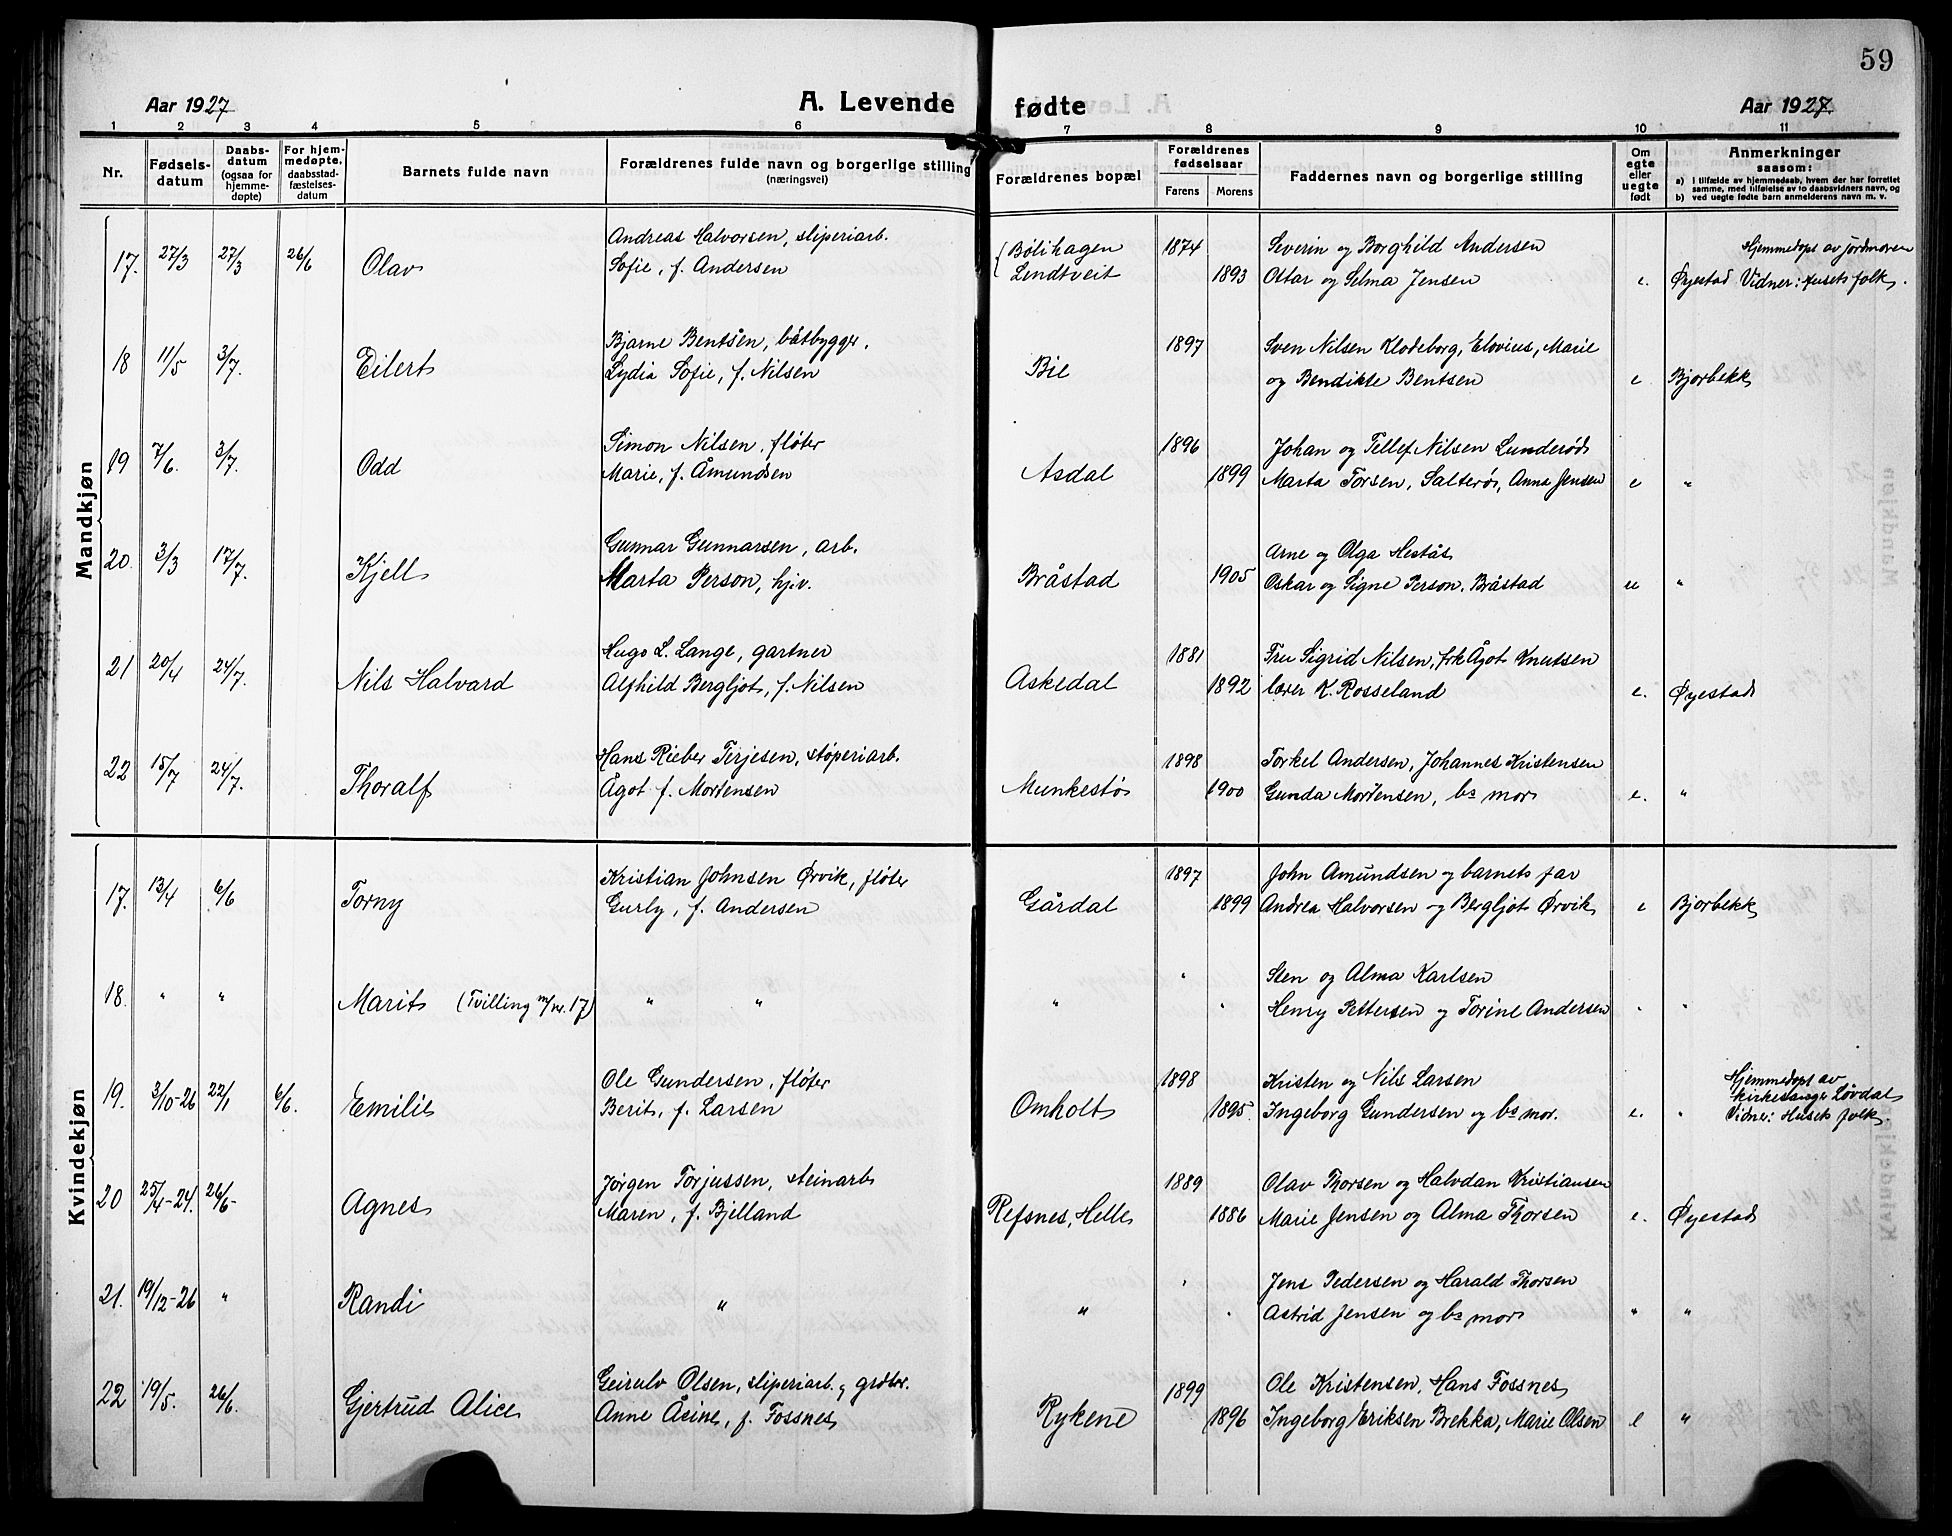 59
Aar 1927
A. Levende fødte
Aar 1927.
1 2 3 4 5 6 7 8 9 10 11
Nr.
Fødsels-
datum
Daabs-
datum
(ogsaa for
hjemme-
døpte)
For hjem-
medøpte,
daabsstad-
fæstelses-
datum
Barnets fulde navn
Forældrenes fulde navn og borgerlige stilling
(næringsvei)
Forældrenes bopæl
Forældrenes
fødselsaar
Farens Morens
Faddernes navn og borgerlige stilling
Om
egte
eller
uegte
født
Anmerkninger
saasom:
a) i tilfælde av hjemmedaab, hvem der har forrettet
samme, med tilføielse av to daabsvidners navn, og
b) ved uegte fødte barn anmelderens navn m. v.
Mandkjøn
Andreas Halvorsen, sliperiarb. Bølihagen 1874 Severin og Borghild Andersen Hjemmedøpt av jordmoren
17. 27/3 27/3 26/6 Olav Sofie, f. Andersen Lindtveit 1893 Ostar og Selma Jensen e. Øyestad Vidner: Husets folk.
Bjarne Bentsen, båtbygger. 1897 Sven Nilsen Klodeborg, Elovius, Marie
18 11/5 3/7. Eilert Lydia Sofie, f. Nilsen Bie og Bendikte Bentsen e Bjorbekk
Simon Nilsen, fløter 1896 Johan og Tellef Nilsen Lunderød
19 7/6. 3/7. Odd Marie, f. Åmundsen Asdal 1899 Marta Torsen, Salterø, Anna Jensen e "
Gunnar Gunnarsen, arb. Arne og Olga Hestås
20. 3/3 17/7. Kjell Marta Person, hjv. Bråstad 1905 Oskar og Signe Person, Bråstad ue "
Hugo L. Lange, gartner 1881 Fru Sigrid Nilsen, frk Ågot Knutsen
21 20/4 24/7. Nils Halvard Alfhild Bergljot, f. Nilsen Askedal 1892 lærer K. Rosseland e. Øyestad
Hans Rieber Terjesen, støperiarb. 1898 Torkel Andersen, Johannes Kristensen
22 15/7 24/7. Thoralf Ågot f. Mortensen Munkestø 1900 Gunda Mortensen, bs mor e. "
Kvindekjøn
Kristian Johnsen Ørvik, fløter 1897 John Amundsen og barnets far
17. 13/4 6/6 Torny Gurly, f. Andersen Gårdal 1899 Andrea Halvorsen og Bergljot Ørvik e Bjorbekk
" Sten og Alma Karlsen
18. " " Marit (Tvilling m/nr. 17) " " " " Henry Pettersen og Torine Andersen " "
Ole Gundersen, fløter 1898 Kristen og Nils Larsen Hjemmedøpt av
kirkesanger Løvdal
19. 3/10-26 22/1 6/6. Emilie Berit, f. Larsen Omholt 1895. Ingeborg Gundersen og bs mor. e. " Vidner: Husets folk.
Jørgen Torjussen, steinarb 1889 Olav Thorsen og Halvdan Kristiansen
20 25/4-24. 26/6- Agnes Maren, f. Bjelland Refsnes, Helle 1886 Marie Jensen og Alma Thorsen e. Øyestad
" Jens Pedersen og Harald Thorsen
21. 19/12-26 " Randi " " " Astrid Jensen og bs mor " "
Geirulv Olsen, sliperiarb. 1899 Ole Kristensen, Hans Fossnes
22 19/5. 26/6. Gjertrud Alice Anne Åsine, f. Fossnes Rykene 1896 Ingeborg Eriksen Brekka, Marie Olsen e "